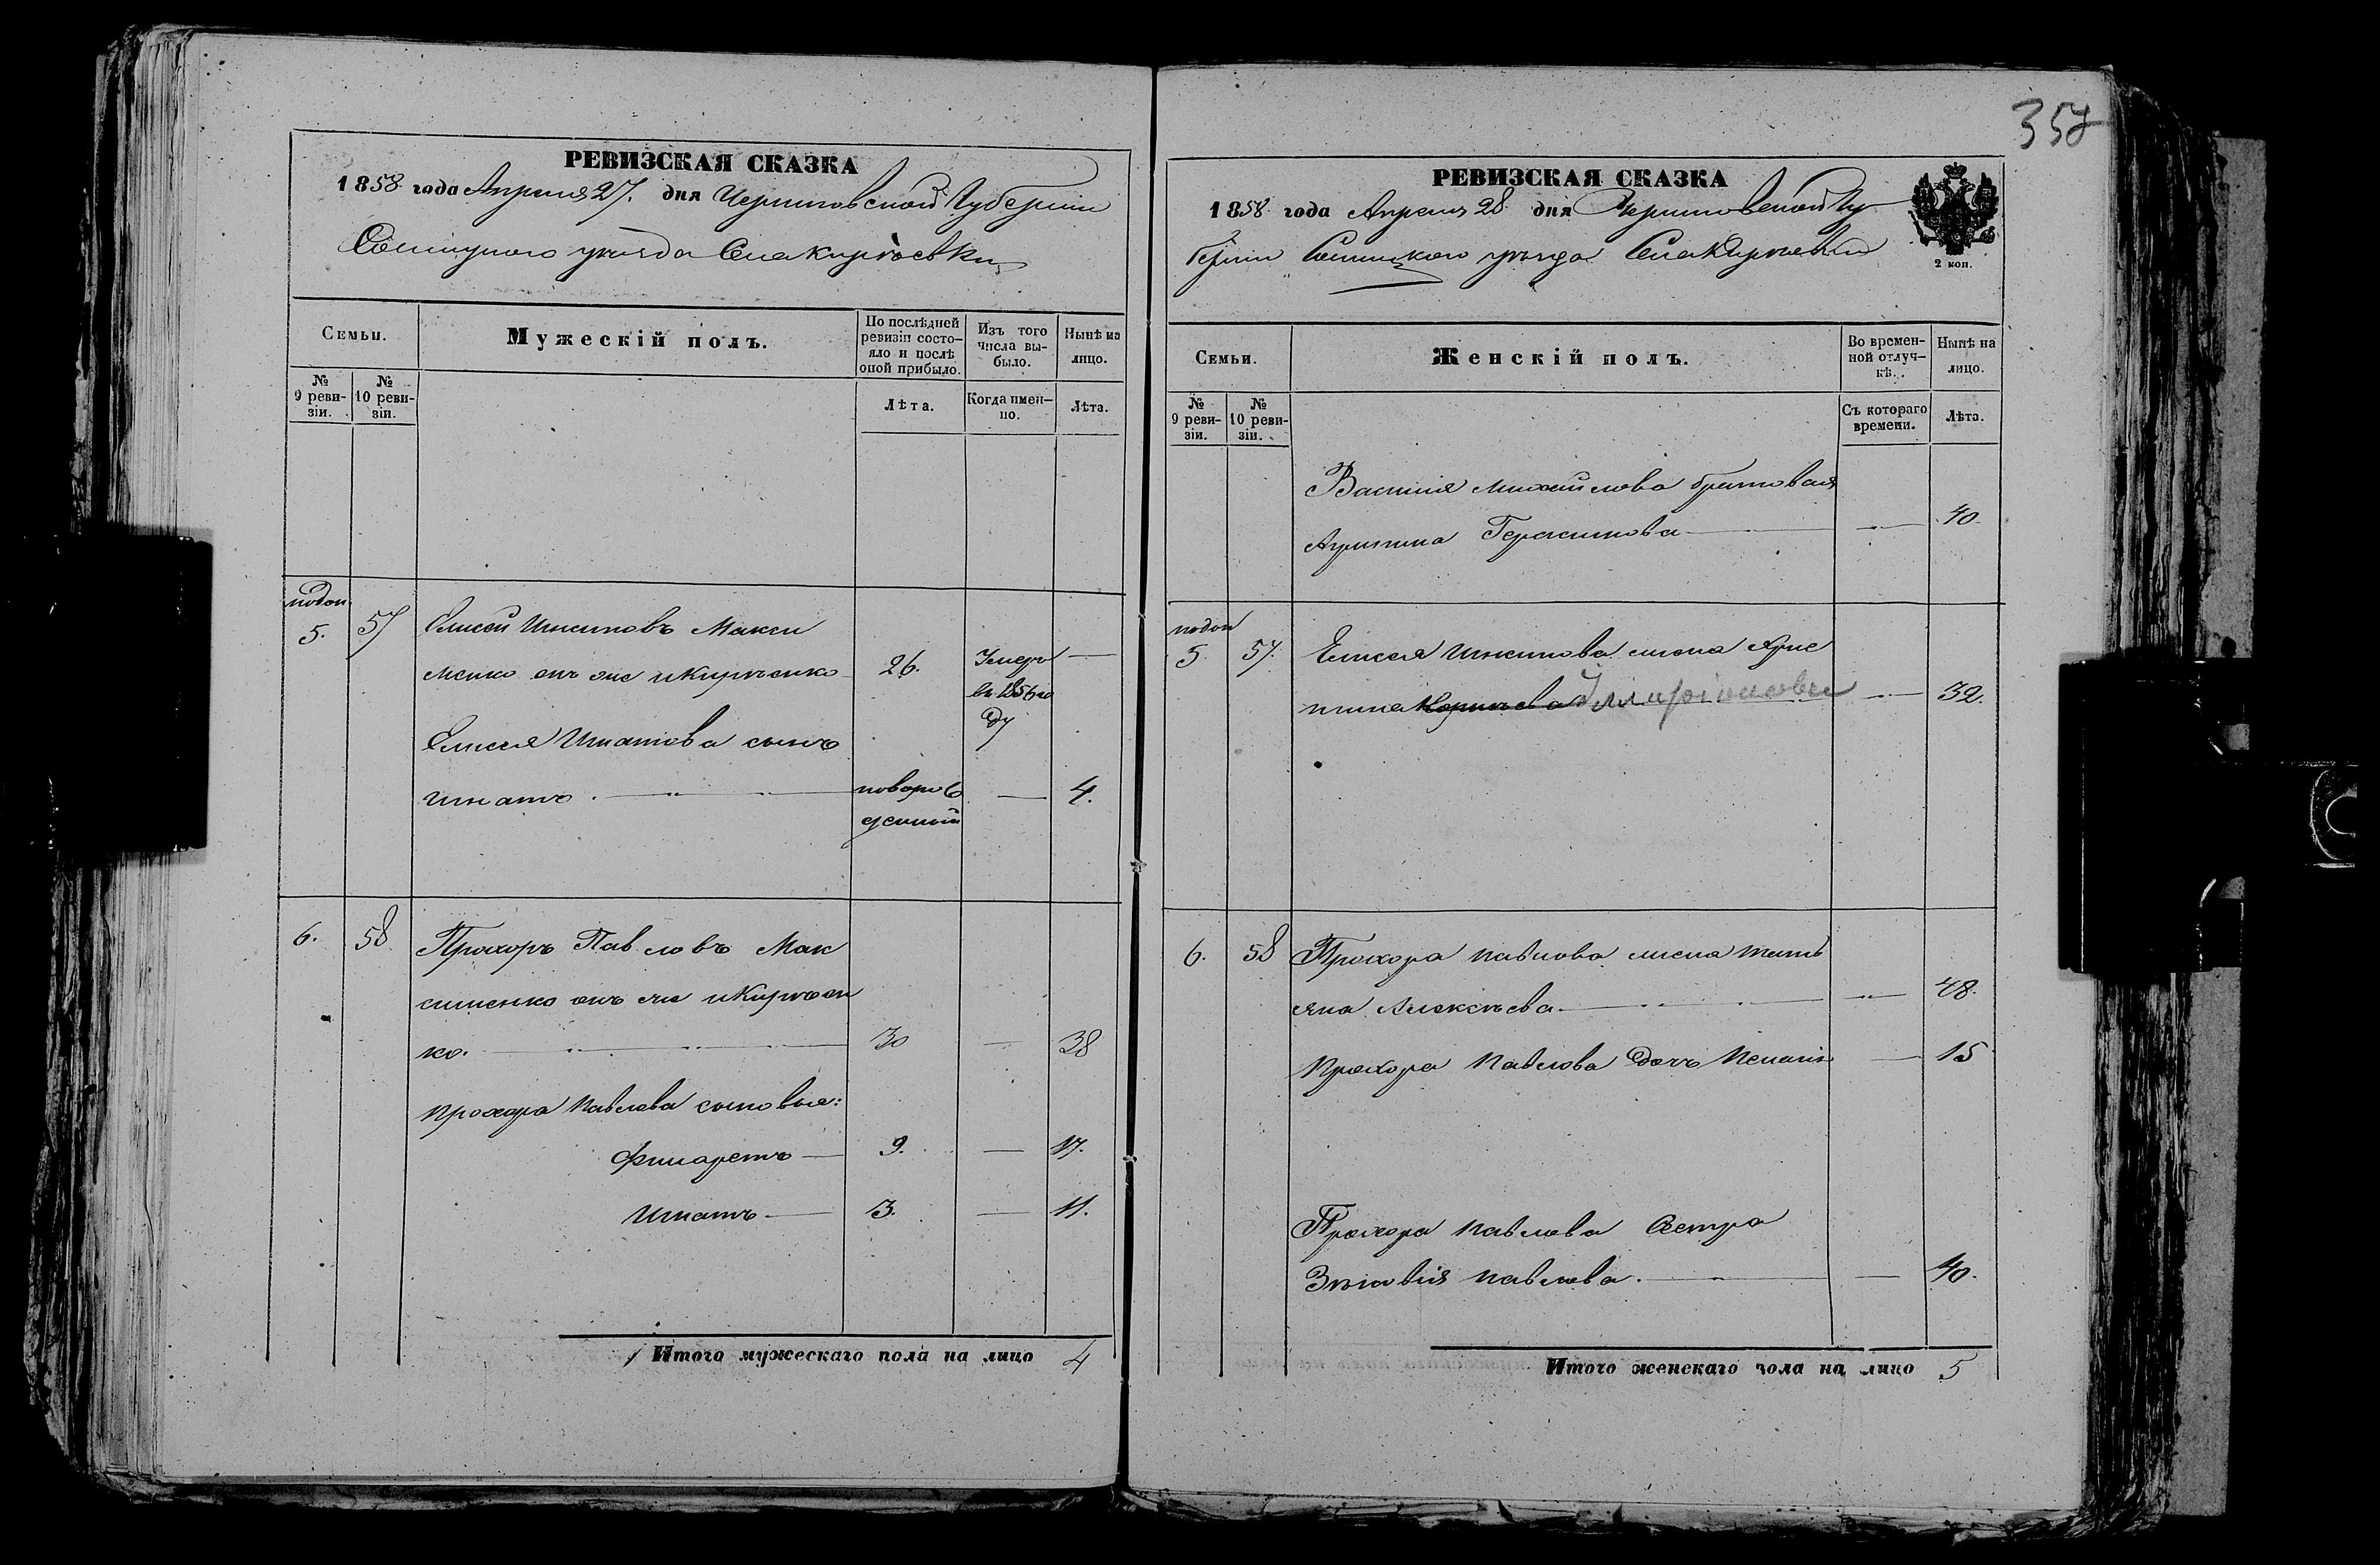 357
РЕВИЗСКАЯ СКАЗКА
1858 года Апреля 27. дня Черниговской Губернии
Сосницкого уезда Села Киріевки
Семьи.
Мужескій полъ.
По послѣдней ревизіи состо-
яло и послѣ
оной прибыло.
Изъ того
числа вы-
было.
Нынѣ на
лицо.
№
9 реви-
зіи.
№
10 реви-
зіи.
Лѣта.
Когда имен-
но.
Лѣта.
подъ
5.
57
Елисей Игнатовъ Макси
менко онъ же и Кирѣенко
26.
Умеръ
въ 1856 го
ду
—
Елисея Игнатова сынъ
Игнатъ
новорож
денный
—
4.
6.
58
Прохоръ Павловъ Мак
сименко онъ же и Кирѣен
ко.
30
—
38
Прохора Павлова сыновья:
Филаретъ — 9. — 17.
Игнатъ — 3. — 11.
Итого мужескаго пола на лицо 4
РЕВИЗСКАЯ СКАЗКА
1858 года Апреля 28 дня Черниговской Гу
берніи Сосницкого уезда Села Киріевки
2 коп.
Семьи.
Женскій полъ.
Во времен-
ной отлуч-
кѣ.
Нынѣ на
лицо.
№
9 реви-
зіи.
№
10 реви-
зіи.
Съ котораго
времени.
Лѣта.
Василія Михайлова
Герасимова — 40.
подъ
5
57.
Елисея Игнатова жена Хрис
тина — 32.
6.
58
Прохора Павлова жена Тать
яна Алексѣева — 48.
Прохора Павлова дочь Пелагія — 15
Прохора Павлова Сестра
Зѣновія Павлова. — 40.
Итого женскаго пола на лицо 5